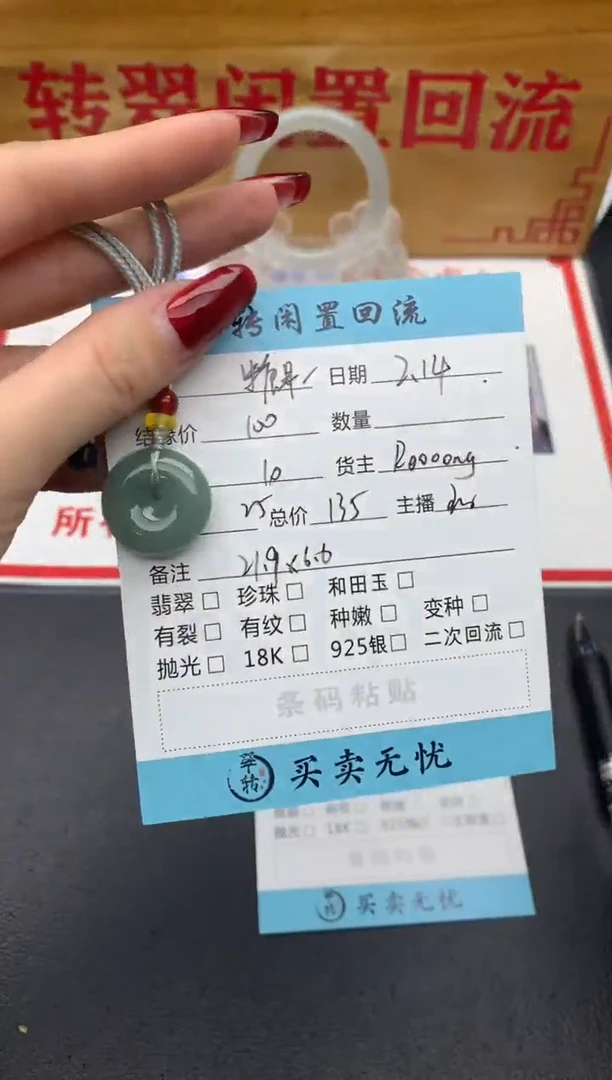 转翠闲置回流
转闲置回流
日期 2.14
结缘价 100 数量
10 货主 Roooong
25 总价 135 主播
备注 21.9×6.6
翡翠□ 珍珠□ 和田玉□
有裂□ 有纹□ 种嫩□ 变种□
抛光□ 18K□ 925银□ 二次回流□
条码粘贴
翠转 买卖无忧
抛光□ 18K□
买卖无忧
所